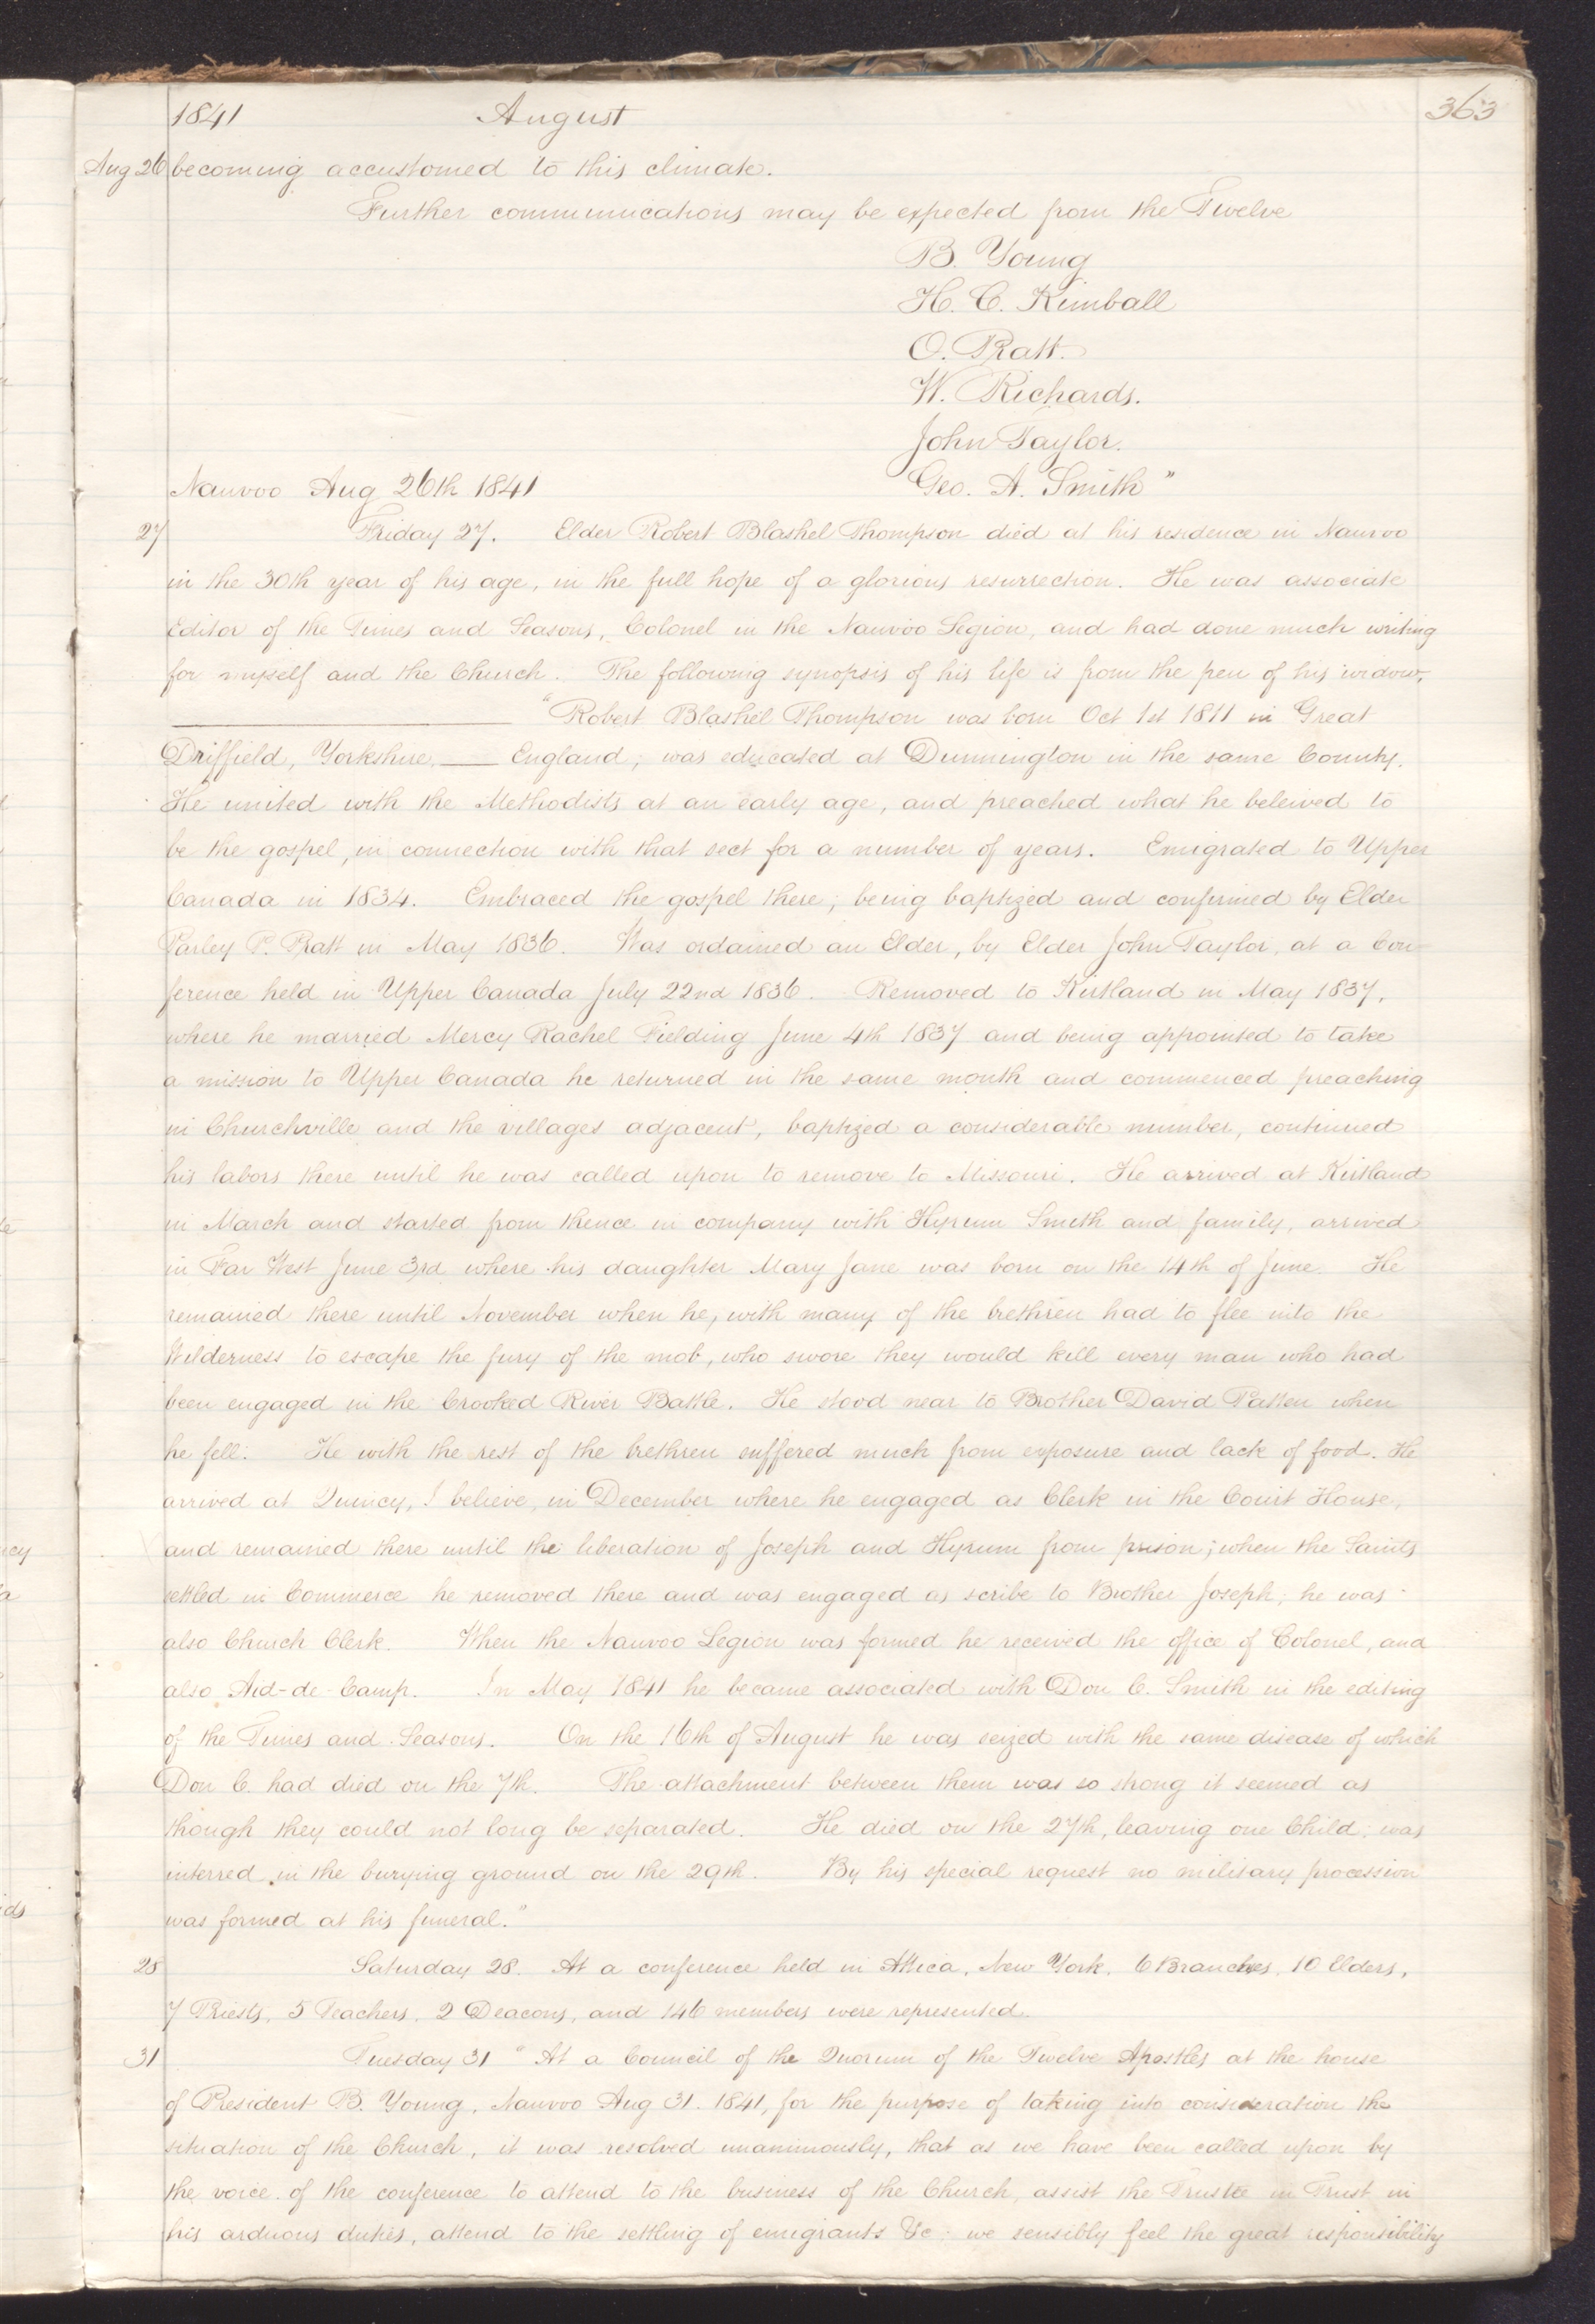 1841 August 363
Aug 26 becoming accustomed to this climate.
Further communications may be expected from the Twelve
B. Young
H. C. Kimball
O. Pratt.
W. Richards.
John Taylor.
Nauvoo Aug 26th 1841 Geo. A. Smith"
27 Friday 27. Elder Robert Blashel Thompson died at his residence in Nauvoo
in the 30th year of his age, in the full hope of a glorious resurrection. He was associate
Editor of the Times and Seasons, Colonel in the Nauvoo Legion, and had done much writing
for myself and the Church. The following synopsis of his life is from the pen of his widow.
"Robert Blashel Thompson was born Oct 1st 1811 in Great
Driffield, Yorkshire, England; was educated at Dunnington in the same County.
He united with the Methodists at an early age, and preached what he beleived to
be the gospel, in connection with that sect for a number of years. Emigrated to Upper
Canada in 1834. Embraced the gospel there; being baptized and confirmed by Elder
Parley P. Pratt in May 1836. Was ordained an Elder, by Elder John Taylor, at a Con-
ference held in Upper Canada July 22nd 1836. Removed to Kirtland in May 1837,
where he married Mercy Rachel Fielding June 4th 1837 and being appointed to take
a mission to Upper Canada he returned in the same month and commenced preaching
in Churchville and the villages adjacent, baptized a considerable number, continued
his labors there until he was called upon to remove to Missouri. He arrived at Kirtland
in March and started from thence in company with Hyrum Smith and family, arrived
in Far West June 3rd where his daughter Mary Jane was born on the 14th of June. He
remained there until November when he, with many of the brethren had to flee into the
Wilderness to escape the fury of the mob, who swore they would kill every man who had
been engaged in the Crooked River Battle. He stood near to Brother David Patten when
he fell. He with the rest of the brethren suffered much from exposure and lack of food. He
arrived at Quincy, I believe, in December where he engaged as Clerk in the Court House,
and remained there until the liberation of Joseph and Hyrum from prison; when the Saints
settled in Commerce he removed there and was engaged as scribe to Brother Joseph; he was
also Church Clerk. When the Nauvoo Legion was formed he received the office of Colonel, and
also Aid-de-Camp. In May 1841 he became associated with Don C. Smith in the editing
of the Times and Seasons. On the 16th of August he was seized with the same disease of which
Don C. had died on the 7th. The attachment between them was so strong it seemed as
though they could not long be separated. He died on the 27th, leaving one Child; was
interred in the burying ground on the 29th. By his special request no military procession
was formed at his funeral."
28 Saturday 28. At a conference held in Attica, New York. 6 Branches, 10 Elders,
7 Priests, 5 Teachers, 2 Deacons, and 146 members were represented.
31 Tuesday 31 "At a Council of the Quorum of the Twelve Apostles at the house
of President B. Young, Nauvoo Aug 31. 1841, for the purpose of taking into consideration the
situation of the Church, it was resolved unanimously, that as we have been called upon by
the voice of the conference to attend to the business of the Church, assist the Trustee in Trust in
his arduous duties, attend to the settling of emigrants &c; we sensibly feel the great responsibility